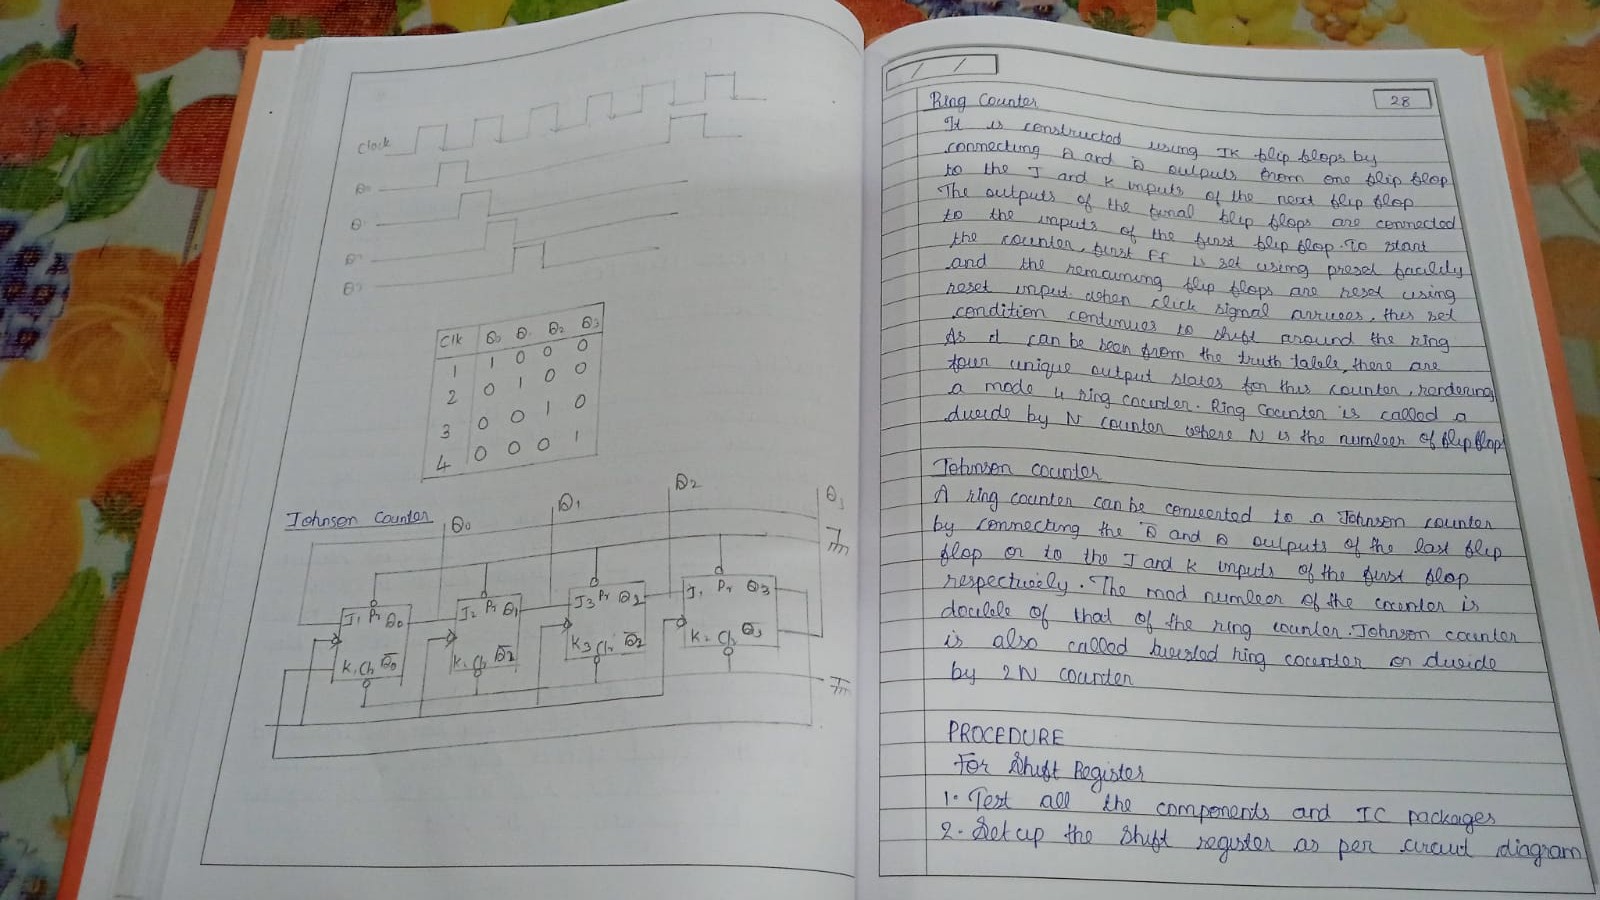 Clock
Q0
Q1
Q2
Q3
Clk Q0 Q1 Q2 Q3
1 1 0 0 0
2 0 1 0 0
3 0 0 1 0
4 0 0 0 1
Johnson Counter
Q0 Q1 Q2 Q3
J1 Pr Q0 J2 Pr Q1 J3 Pr Q2 J, Pr Q3
K, Cl, Q̅0 K, Cl, Q̅2 K3 Cl, Q̅2 K, Cl, Q̅3
28
Ring Counter
It is constructed using JK flip flops by
connecting Q and Q̅ outputs from one flip flop
to the J and K inputs of the next flip flop
The outputs of the final flip flops are connected
to the inputs of the first flip flop. To start
the counter, first FF is set using preset facility
and the remaining flip flops are reset using
reset input. When click signal arrives, this set
condition continues to shift around the ring
As it can be seen from the truth table, there are
four unique output states for this counter, rendering
a mode 4 ring counter. Ring Counter is called a
divide by N counter where N is the number of flip flops
Johnson counter
A ring counter can be converted to a Johnson counter
by connecting the Q̅ and Q outputs of the last flip
flop or to the J and K inputs of the first flop
respectively. The mod number of the counter is
double of that of the ring counter. Johnson counter
is also called twisted ring counter or divide
by 2N counter
PROCEDURE
For Shift Register
1. Test all the components and IC packages
2. Set up the shift register as per circuit diagram